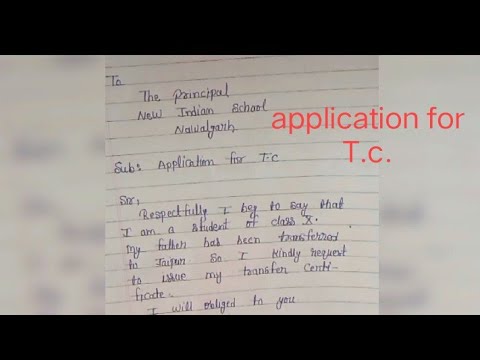 To
The Principal
New Indian School
Nawalgarh
application for
T.c.
Sub: Application for T.C
Sir,
Respectfully I beg to say that
I am a student of class X.
My father has been transferred
to Jaipur So I kindly request
to issue my transfer Centi-
ficate.
I will obliged to you